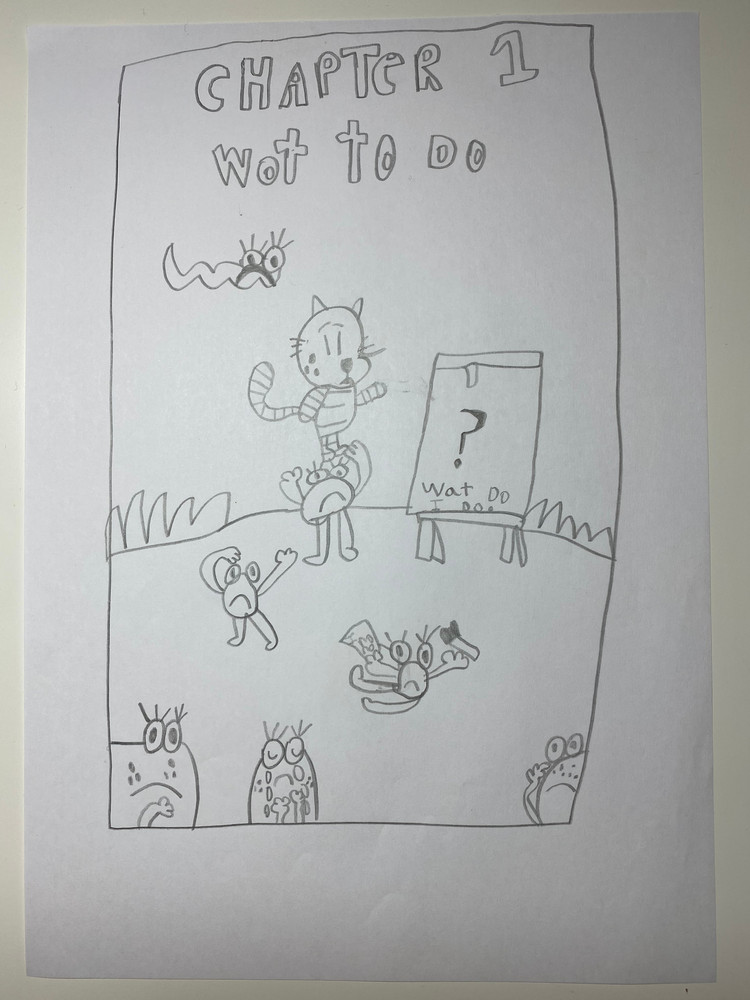 CHAPTER 1
WOT TO DO
?
Wat DO
I DO.